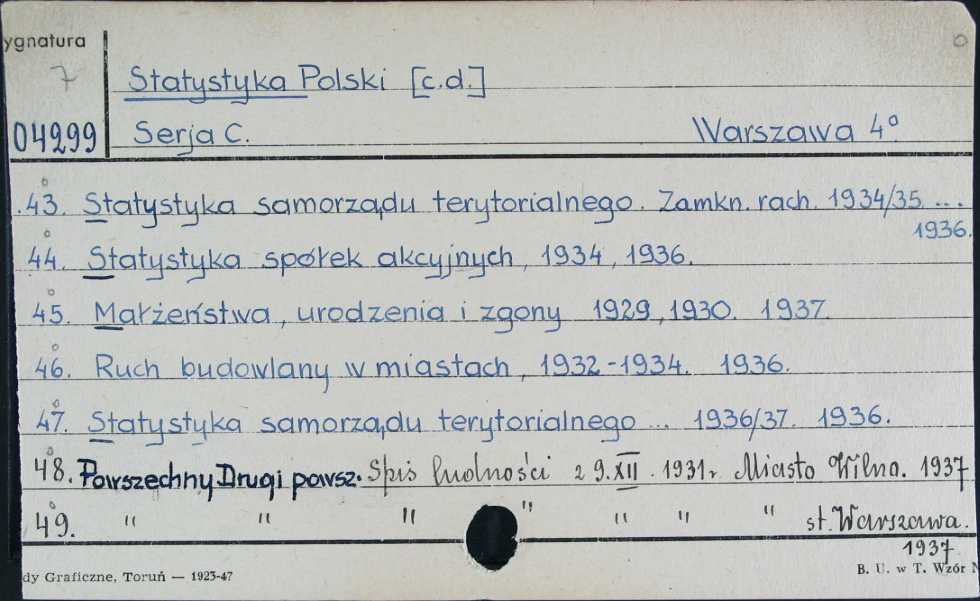 ygnatura
7
Statystyka Polski [c.d.]
04299
Serja C. Warszawa 4º
43. Statystyka samorządu terytorialnego. Zamkn. rach. 1934/35 ...
1936.
44. Statystyka spółek akcyjnych, 1934, 1936.
45. Małżeństwa, urodzenia i zgony 1929, 1930. 1937.
46. Ruch budowlany w miastach, 1932-1934. 1936.
47. Statystyka samorządu terytorialnego ... 1936/37. 1936.
48. Powszechny Drugi powsz. Spis ludności z 9.XII. 1931r Miasto Wilno. 1937
49. " " " " " " " st. Warszawa.
1937
dy Graficzne, Toruń — 1923-47
B. U. w T. Wzór N